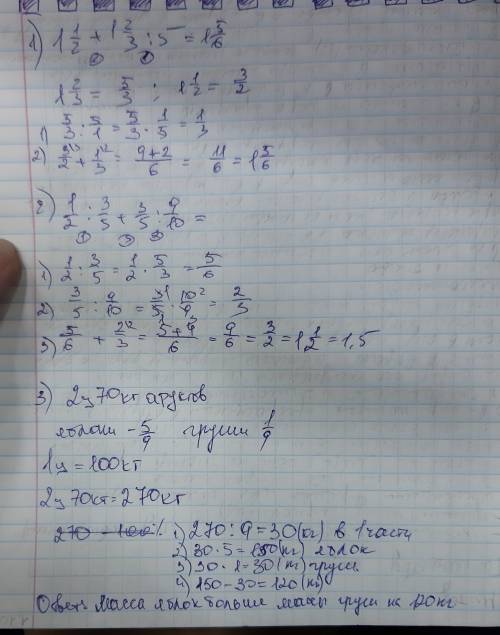 1) 1 1/2 + 1 2/3 : 5 = 1 5/6
② ①
1 2/3 = 5/3 ; 1 1/2 = 3/2
1) 5/3 : 5/1 = 5/3 · 1/5 = 1/3
2) 3/2 + 1/3 = 9+2/6 = 11/6 = 1 5/6
2) 1/2 : 3/5 + 3/5 : 9/10 =
① ③ ②
1) 1/2 : 3/5 = 1/2 · 5/3 = 5/6
2) 3/5 : 9/10 = 3/5 · 10/9 = 2/3
3) 5/6 + 2/3 = 5+4/6 = 9/6 = 3/2 = 1 1/2 = 1,5
3) 2ц 70кг фруктов
яблоки - 5/9 груши 1/9
1ц = 100кг
2ц 70кг = 270кг
270 - 100% 1) 270 : 9 = 30(кг) в 1 части
2) 30 · 5 = 150(кг) яблок
3) 30 · 1 = 30(кг) груш
4) 150 - 30 = 120(кг)
Ответ: Масса яблок больше массы груш на 120кг